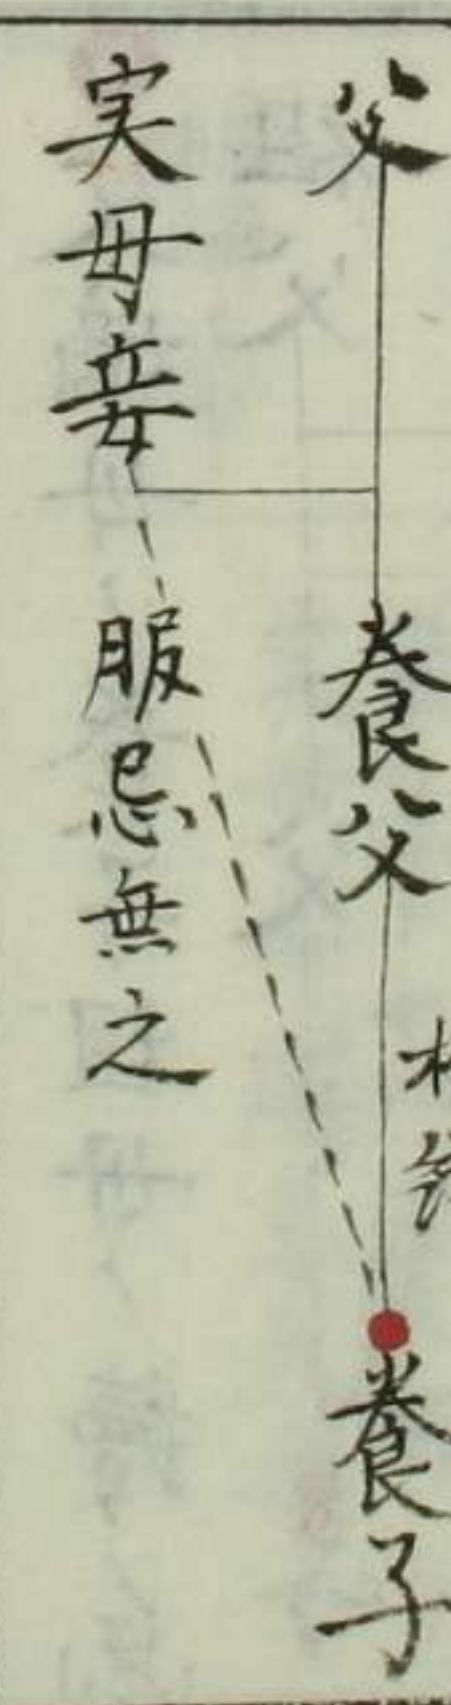 父
養父
養子
実母妾
服忌無之